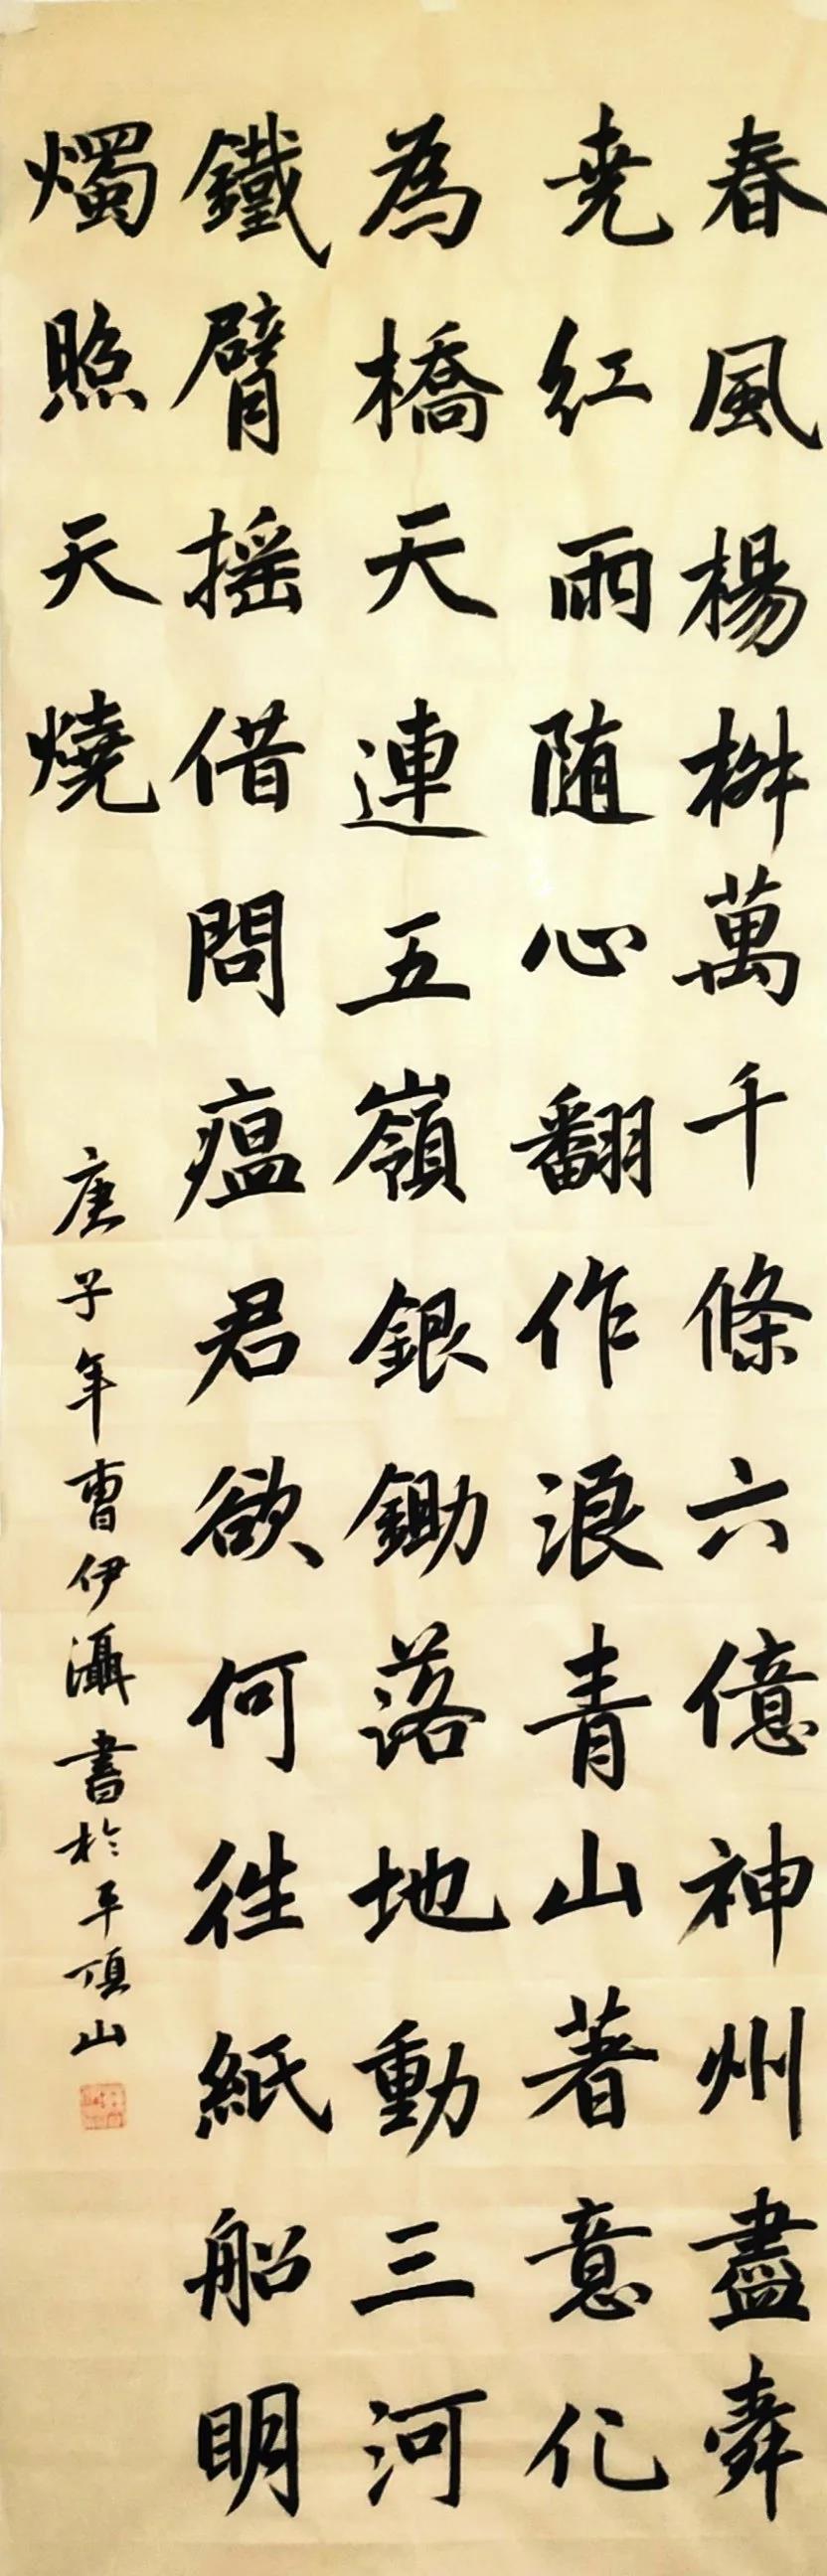 春風楊柳萬千條六億神州盡舜
尭紅雨随心翻作浪青山著意化
為橋天連五嶺銀鋤落地動三河
鐵臂摇借問瘟君欲何往紙船明
燭照天燒
庚子年曹伊灄書於平頂山